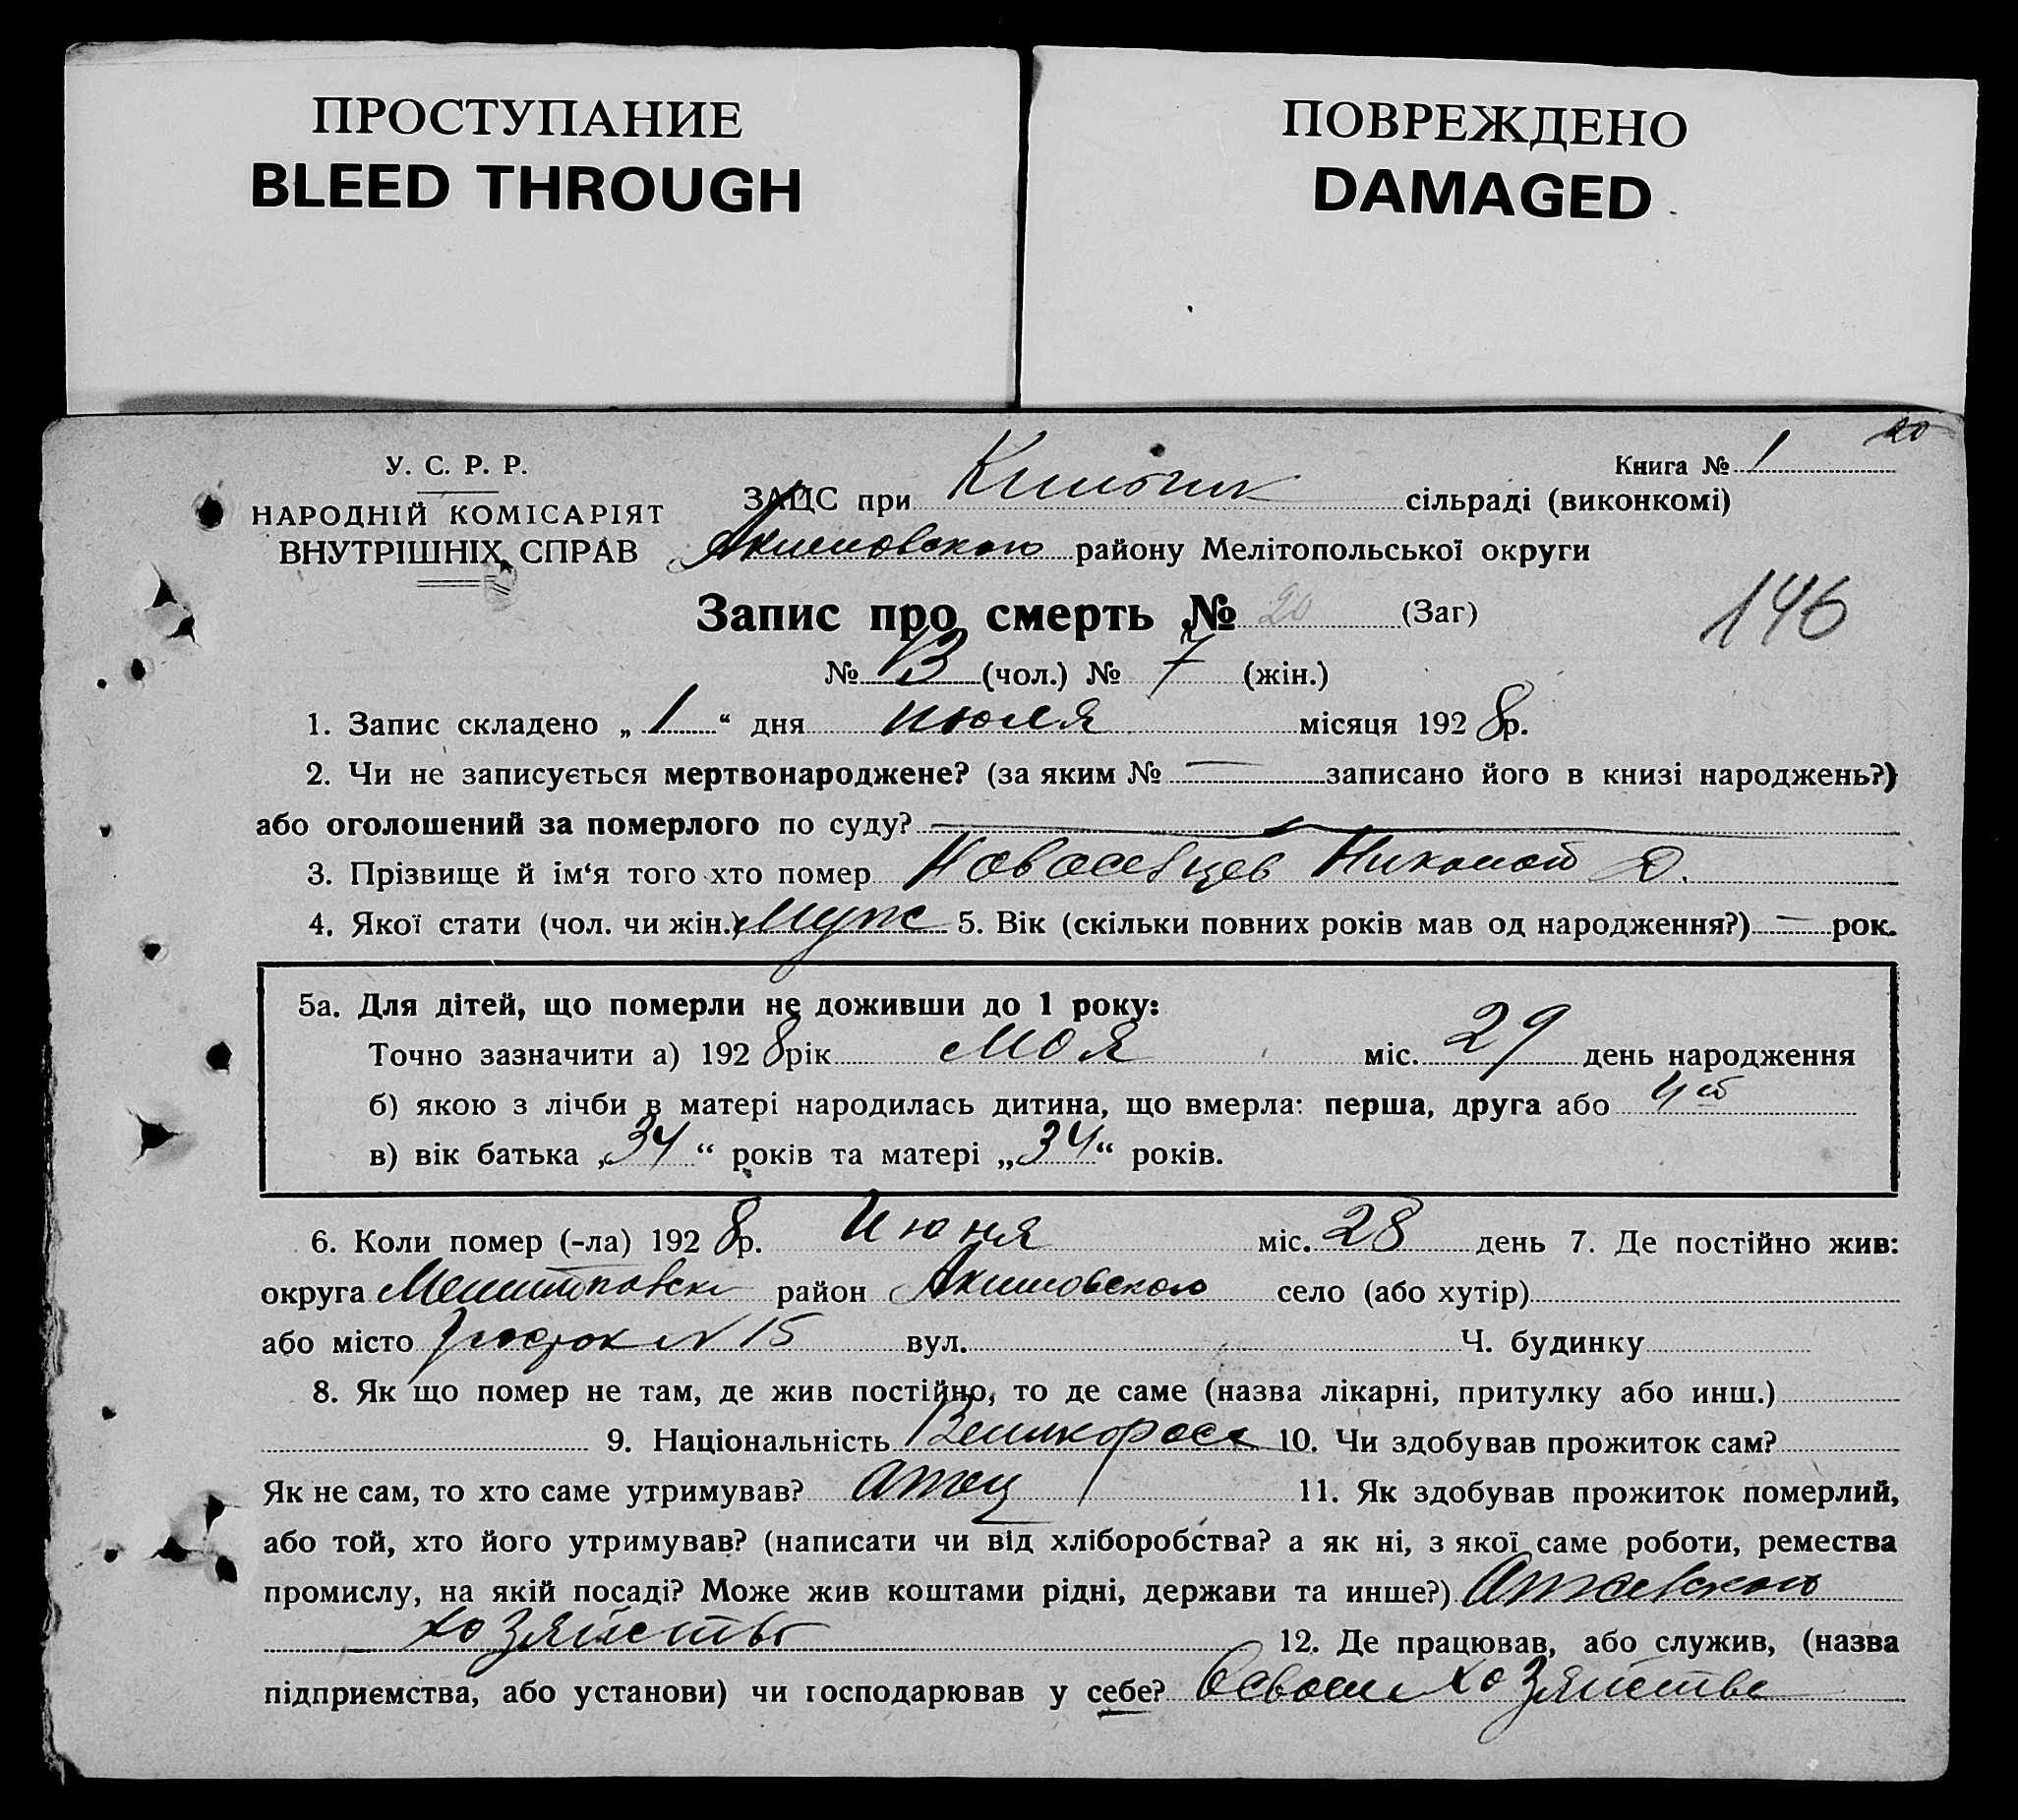 ПРОСТУПАНИЕ
BLEED THROUGH
ПОВРЕЖДЕНО
DAMAGED
20
У. С. Р. Р.
НАРОДНІЙ КОМІСАРІЯТ
ВНУТРІШНІХ СПРАВ
Книга № 1
ЗАЦС при сільраді (виконкомі)
Акимовского району Мелітопольської округи
Запис про смерть № 20 (Заг)
146
№ 13 (чол.) № 7 (жін.)
1. Запис складено „ 1 “ дня июля місяця 1928 р.
2. Чи не записується мертвонароджене? (за яким № — записано його в книзі народжень?)
або оголошений за померлого по суду? —
3. Прізвище й ім‘я того хто помер Новосевцев Николай Д.
4. Якої стати (чол. чи жін.) Муж 5. Вік (скільки повних років мав од народження?) — рок.
5а. Для дітей, що померли не доживши до 1 року:
Точно зазначити а) 1928 рік мая міс. 29 день народження
б) якою з лічби в матері народилась дитина, що вмерла: перша, друга або 4ой
в) вік батька „34“ років та матері „34“ років.
6. Коли помер (-ла) 1928 р. Июня міс. 28 день 7. Де постійно жив:
округа район Акимовского село (або хутір)
або місто N 15 вул. Ч. будинку
8. Як що помер не там, де жив постійно, то де саме (назва лікарні, притулку або инш.)
9. Національність Великоросс 10. Чи здобував прожиток сам?
Як не сам, то хто саме утримував? Отец 11. Як здобував прожиток померлий,
або той, хто його утримував? (написати чи від хліборобства? а як ні, з якої саме роботи, ремества
промислу, на якій посаді? Може жив коштами рідні, держави та инше?)
хозяйства 12. Де працював, або служив, (назва
підприємства, або установи) чи господарював у себе? В своем хозяйстве